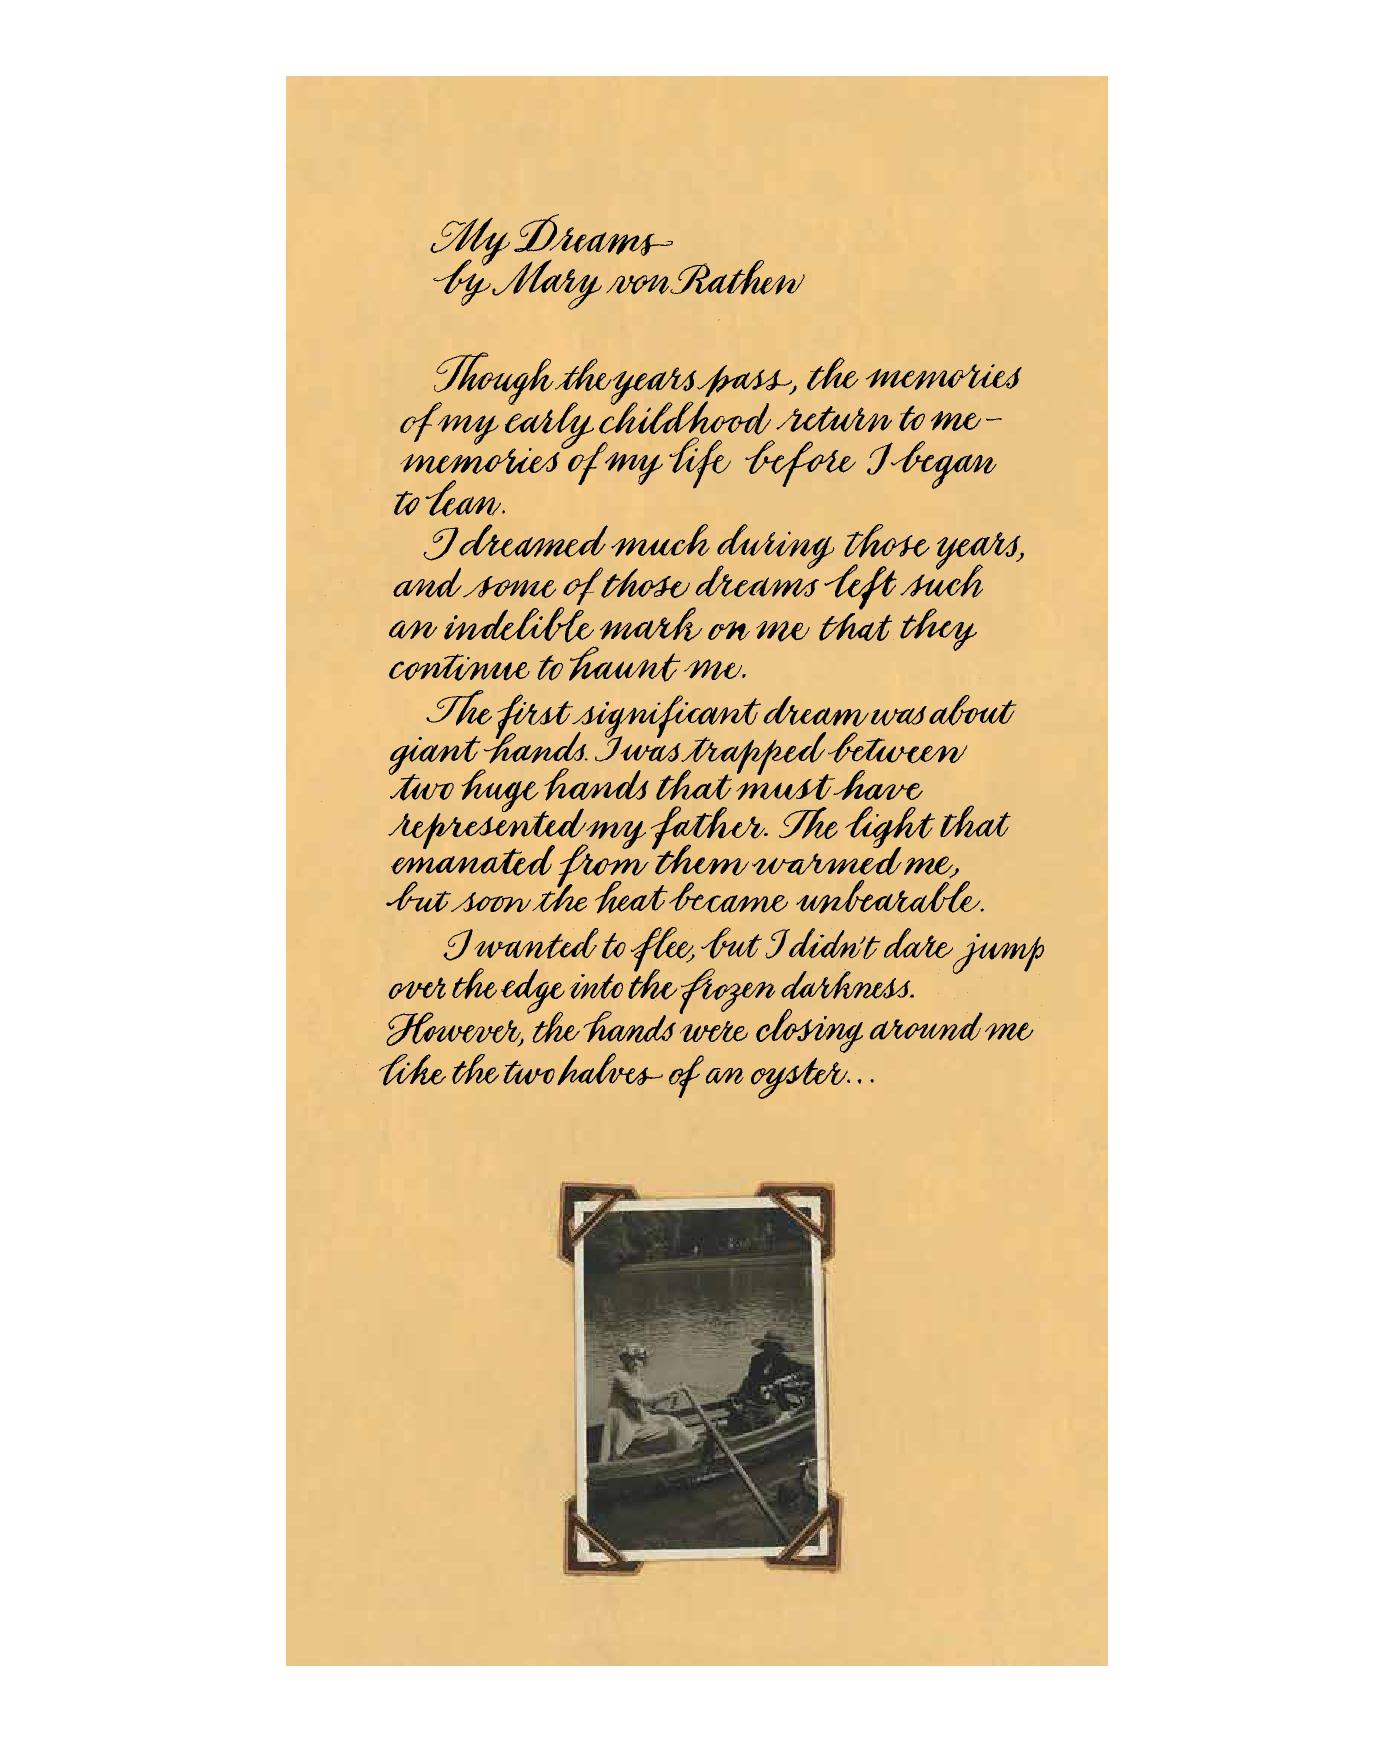 My Dreams
by Mary von Rathen
Though the years pass, the memories
of my early childhood return to me –
memories of my life before I began
to lean.
I dreamed much during those years,
and some of those dreams left such
an indelible mark on me that they
continue to haunt me.
The first significant dream was about
giant hands. I was trapped between
two huge hands that must have
represented my father. The light that
emanated from them warmed me,
but soon the heat became unbearable.
I wanted to flee, but I didn't dare jump
over the edge into the frozen darkness.
However, the hands were closing around me
like the two halves of an oyster...